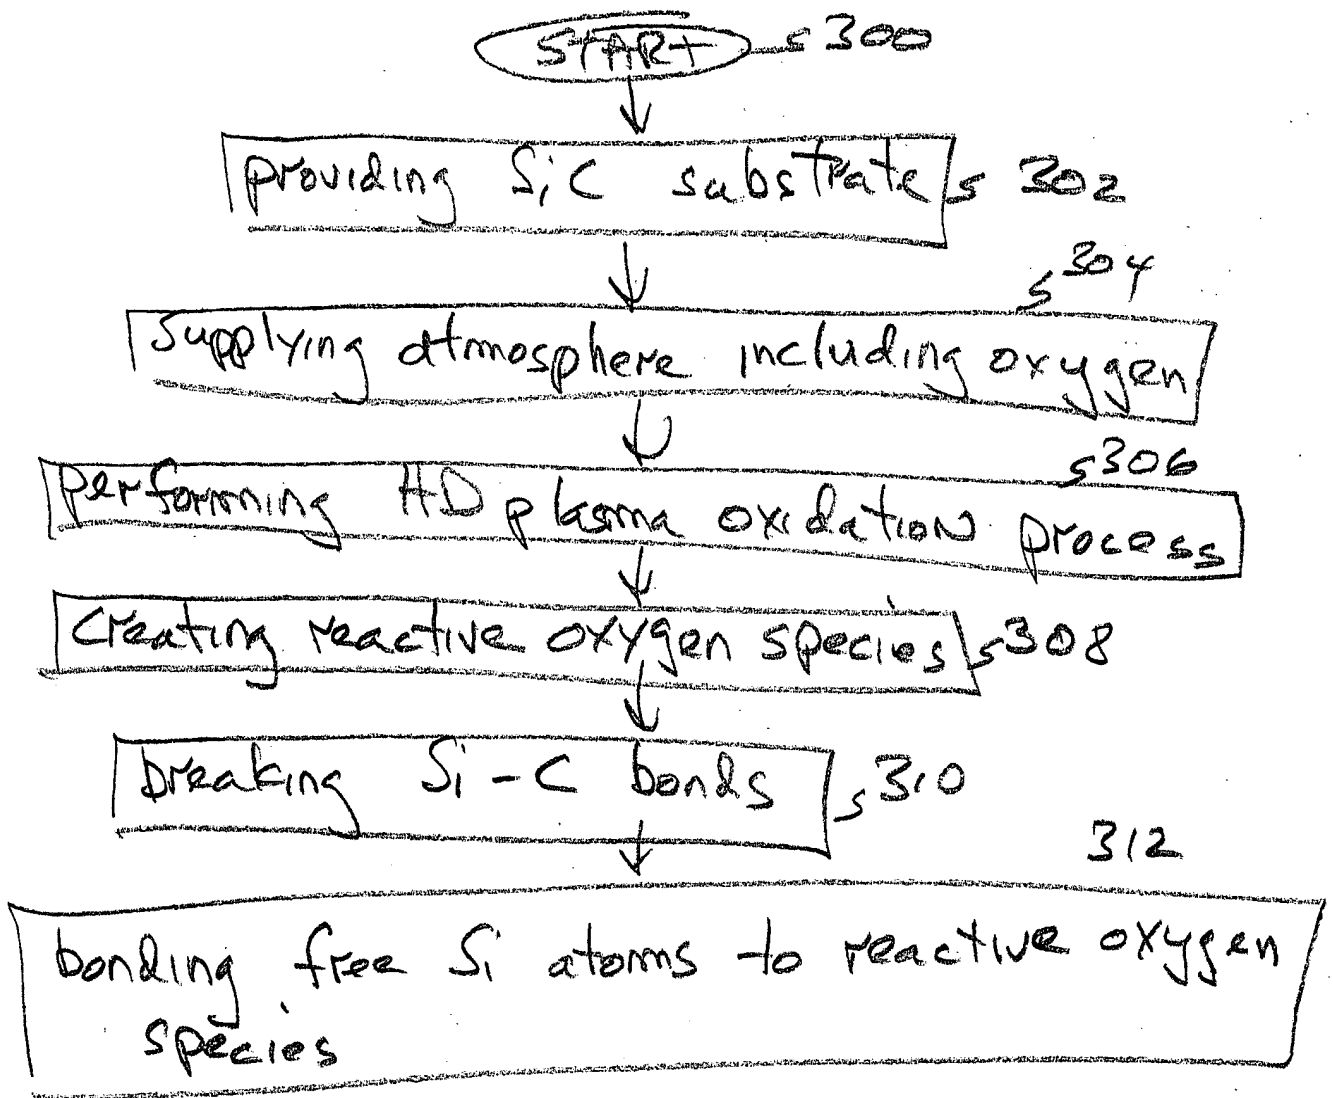 START 300
providing SiC substrate 302
304
Supplying atmosphere including oxygen
306
performing HD plasma oxidation process
creating reactive oxygen species 308
breaking Si-C bonds 310
312
bonding free Si atoms to reactive oxygen
species